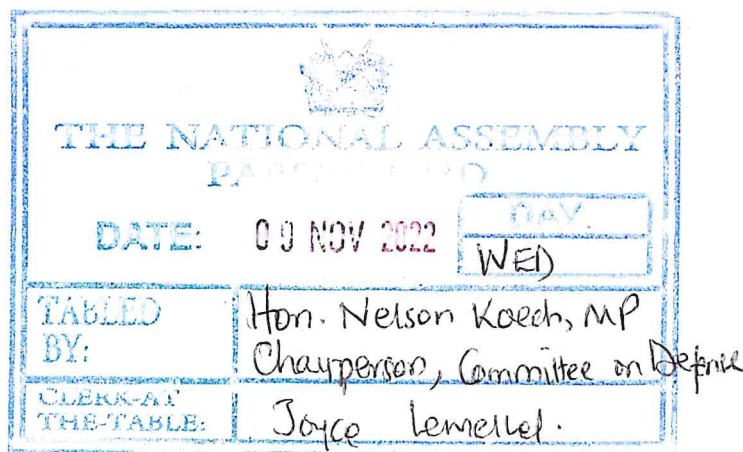 THE NATIONAL ASSEMBLY
DATE: 09 NOV 2022
DAY.
WED
TABLED BY: Hon. Nelson Koech, MP
Chairperson, Committee on Defence
CLERK-AT THE-TABLE: Joyce